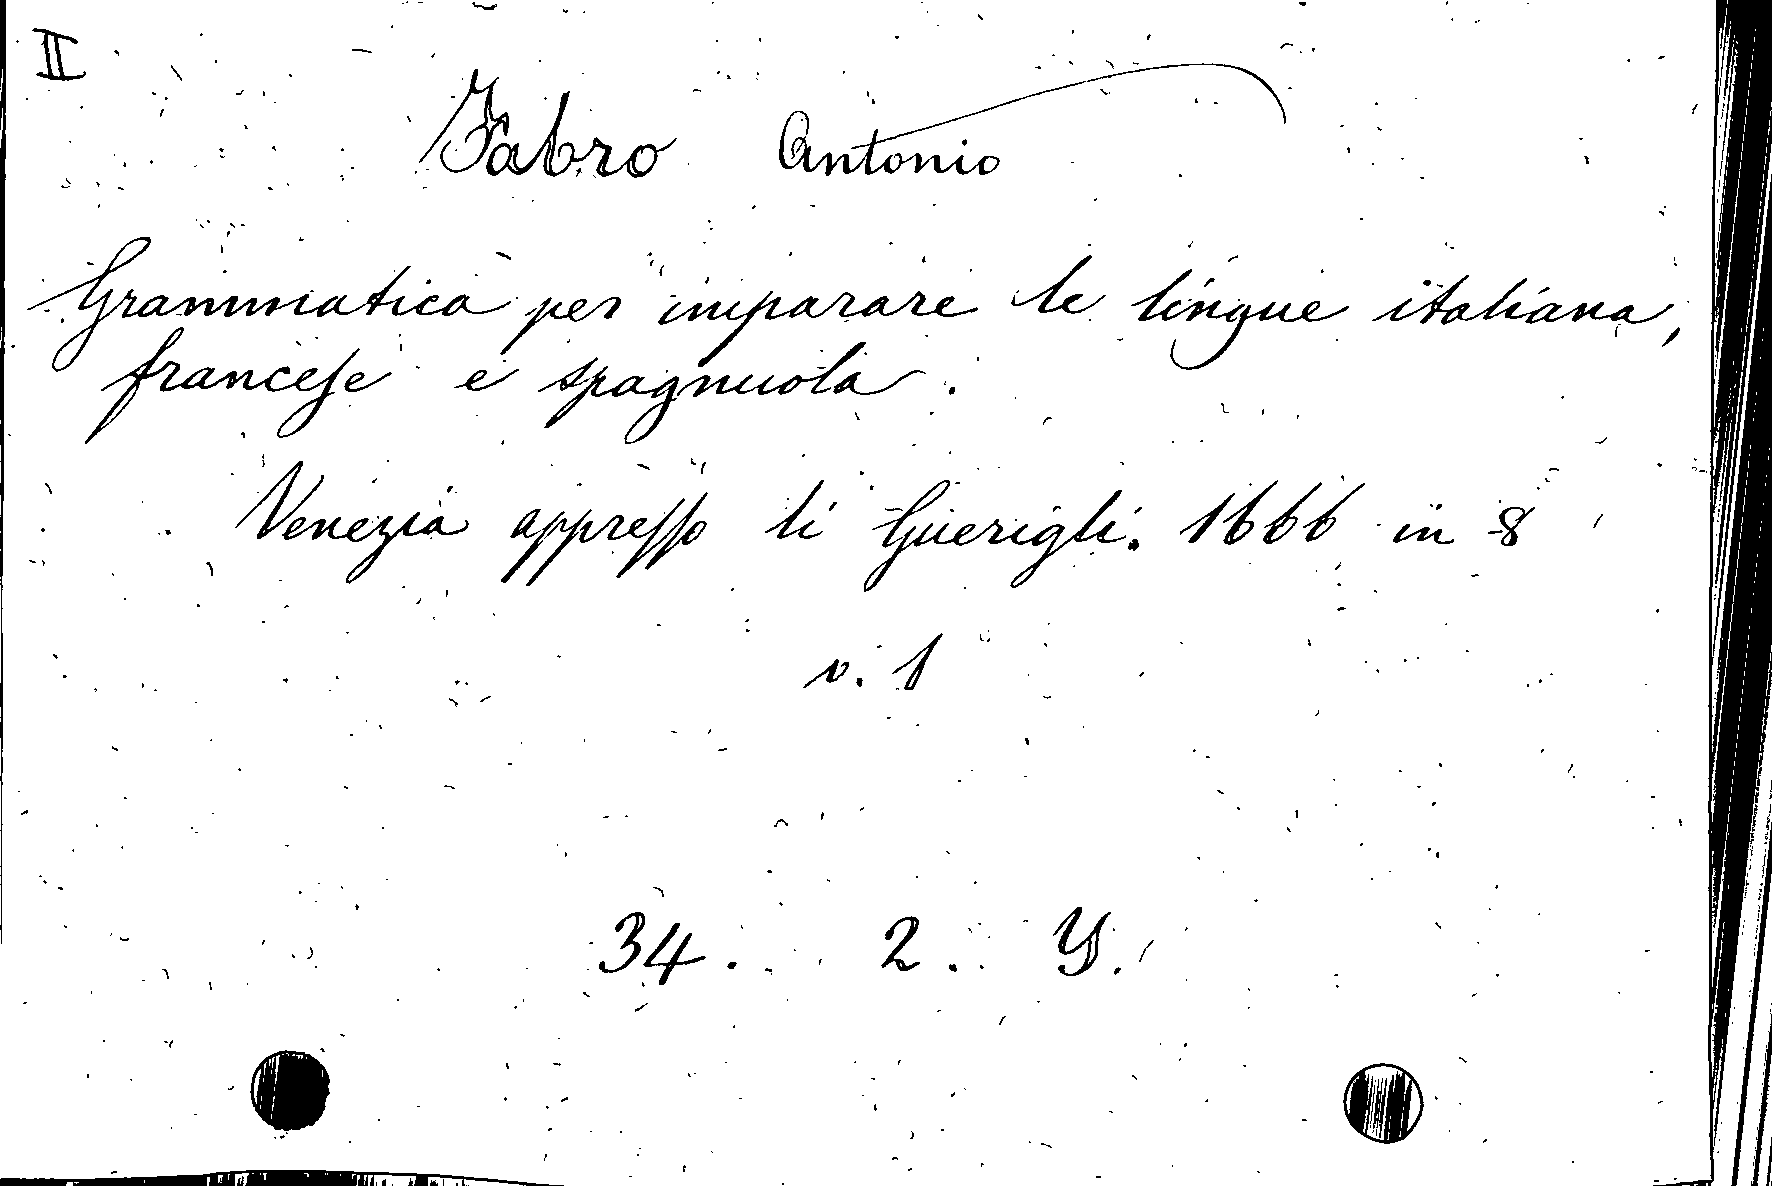 II
Fabro Antonio
Grammatica per imparare le lingue italiana,
francese e spagnuola.
Venezia appresso li Guerigli. 1666 in 8
v. 1
34. 2. Y.